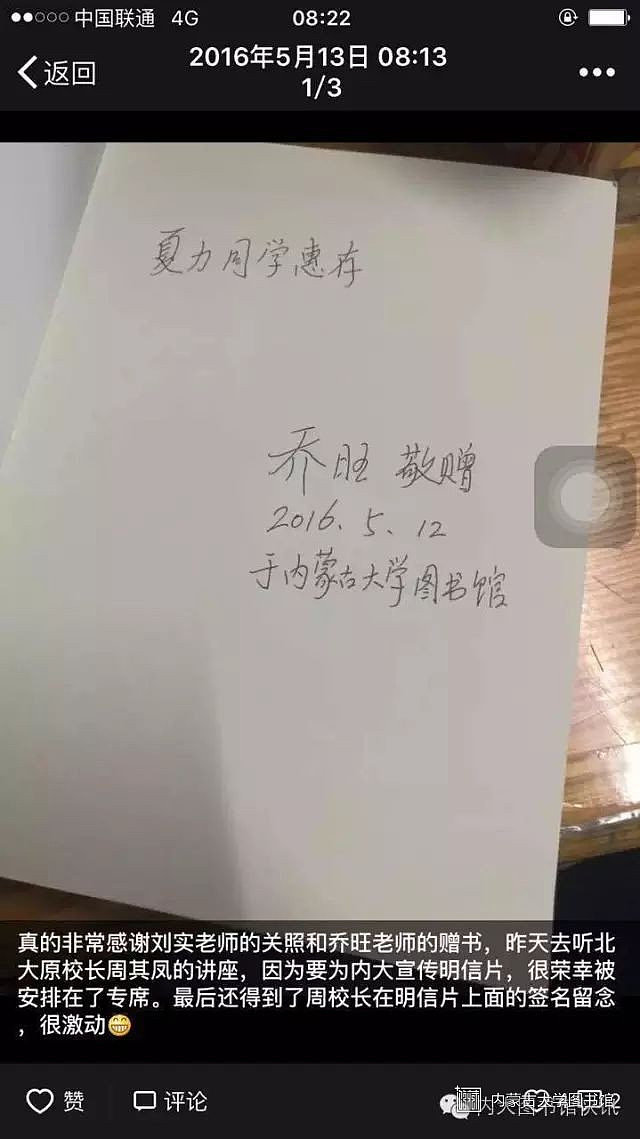 中国联通 4G 08:22
返回
2016年5月13日 08:13
1/3
夏力同学惠存
乔旺 敬赠
2016.5.12
于内蒙古大学图书馆
真的非常感谢刘实老师的关照和乔旺老师的赠书，昨天去听北
大原校长周其凤的讲座，因为要为内大宣传明信片，很荣幸被
安排在了专席。最后还得到了周校长在明信片上面的签名留念
，很激动😁
赞 评论
内蒙古大学图书馆
内大图书馆快讯
2